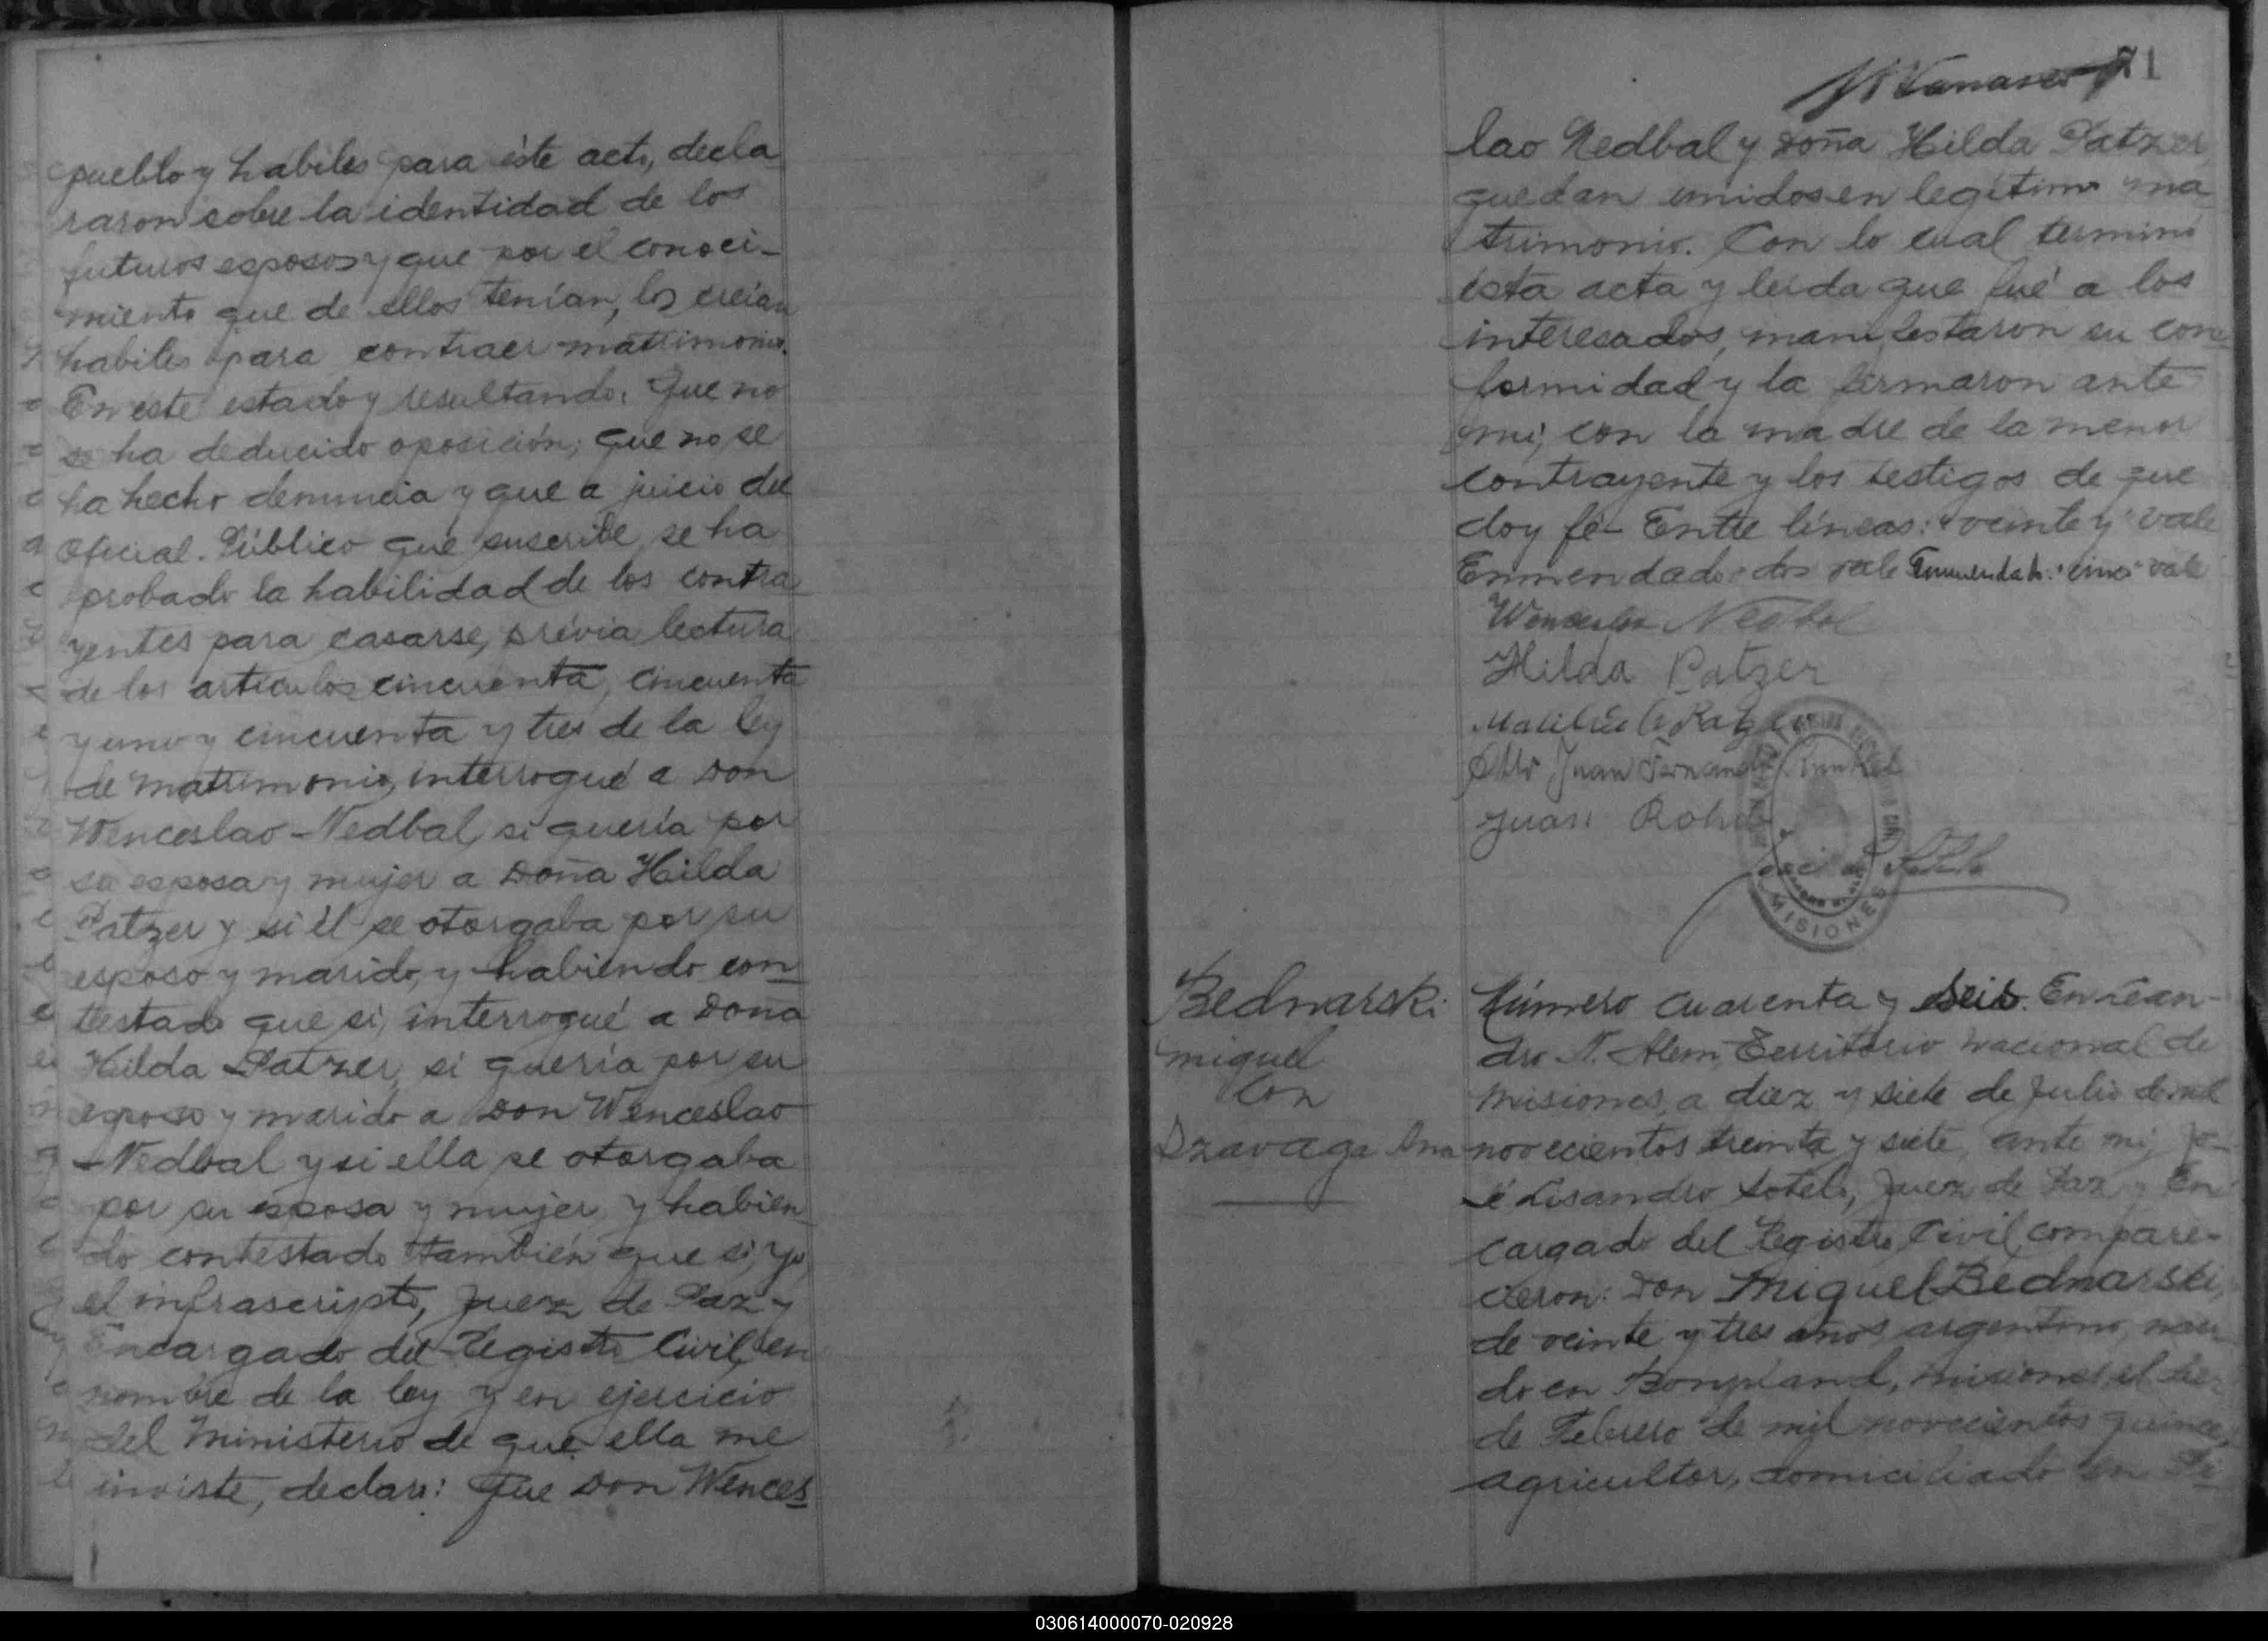 pueblo y habiles para éste acto, decla
raron sobre la identidad de los
futuros esposos y que por el conoci-
miento que de ellos tenían, los creían
habiles para contraer matrimonio.
En este estado y resultando: Que no
se ha deducido oposición; que no se
ha hecho denuncia y que a juicio del
Oficial Público que suscribe se ha
probado la habilidad de los contra
yentes para casarse, prévia lectura
de los artículos cincuenta, cincuenta
y uno y cincuenta y tres de la ley
de matrimonio, interrogué a Don
Wenceslao Nedbal, si quería por
su esposa y mujer a Doña Hilda
Patzer y si él se otorgaba por su
esposo y marido, y habiendo con
testado que si, interrogué a Doña
Hilda Patzer, si quería por su
esposo y marido a Don Wenceslao
Nedbal y si ella se otorgaba
por su esposa y mujer, y habien
do contestado también que si, yo,
el infrascripto, Juez de Paz y
Encargado del Registro Civil, en
nombre de la ley y en ejercicio
del Ministerio de que ella me
inviste, declaro: Que Don Wences
71
lao Nedbal y Doña Hilda Patzer,
quedan unidos en legítimo ma
trimonio. Con lo cual terminó
ésta acta y leida que fué a los
interesados, manifestaron su con
formidad y la firmaron ante
mi, con la madre de la menor
contrayente y los testigos de que
doy fé- Entre líneas: "veinte y" vale
Enmendado: dos vale Enmendado: vale
Wenceslao Nedbal
Hilda Patzer
Otto Juan
Juan
MISIONES
Bednarski
miguel
con
Dzavaga Ana
Número cuarenta y seis. En Lean-
dro N. Alem, Territorio Nacional de
Misiones, a diez y siete de Julio de mil
novecientos treinta y siete, ante mi, Jo-
sé Lisandro Sotelo, Juez de Paz y En
cargado del Registro Civil, compare-
cieron: Don Miguel Bednarski,
de veinte y tres años, argentino, naci
do en Bonpland, Misiones, el
de Febrero de mil novecientos quince,
agricultor, domiciliado en
030614000070-020928